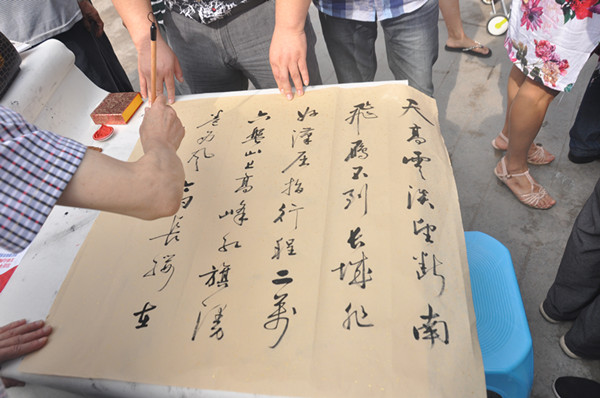 天高雲淡望断南
飛鴈不到长城非
好漢屈指行程二萬
六盤山上高峰红旗漫
卷西风长缨在